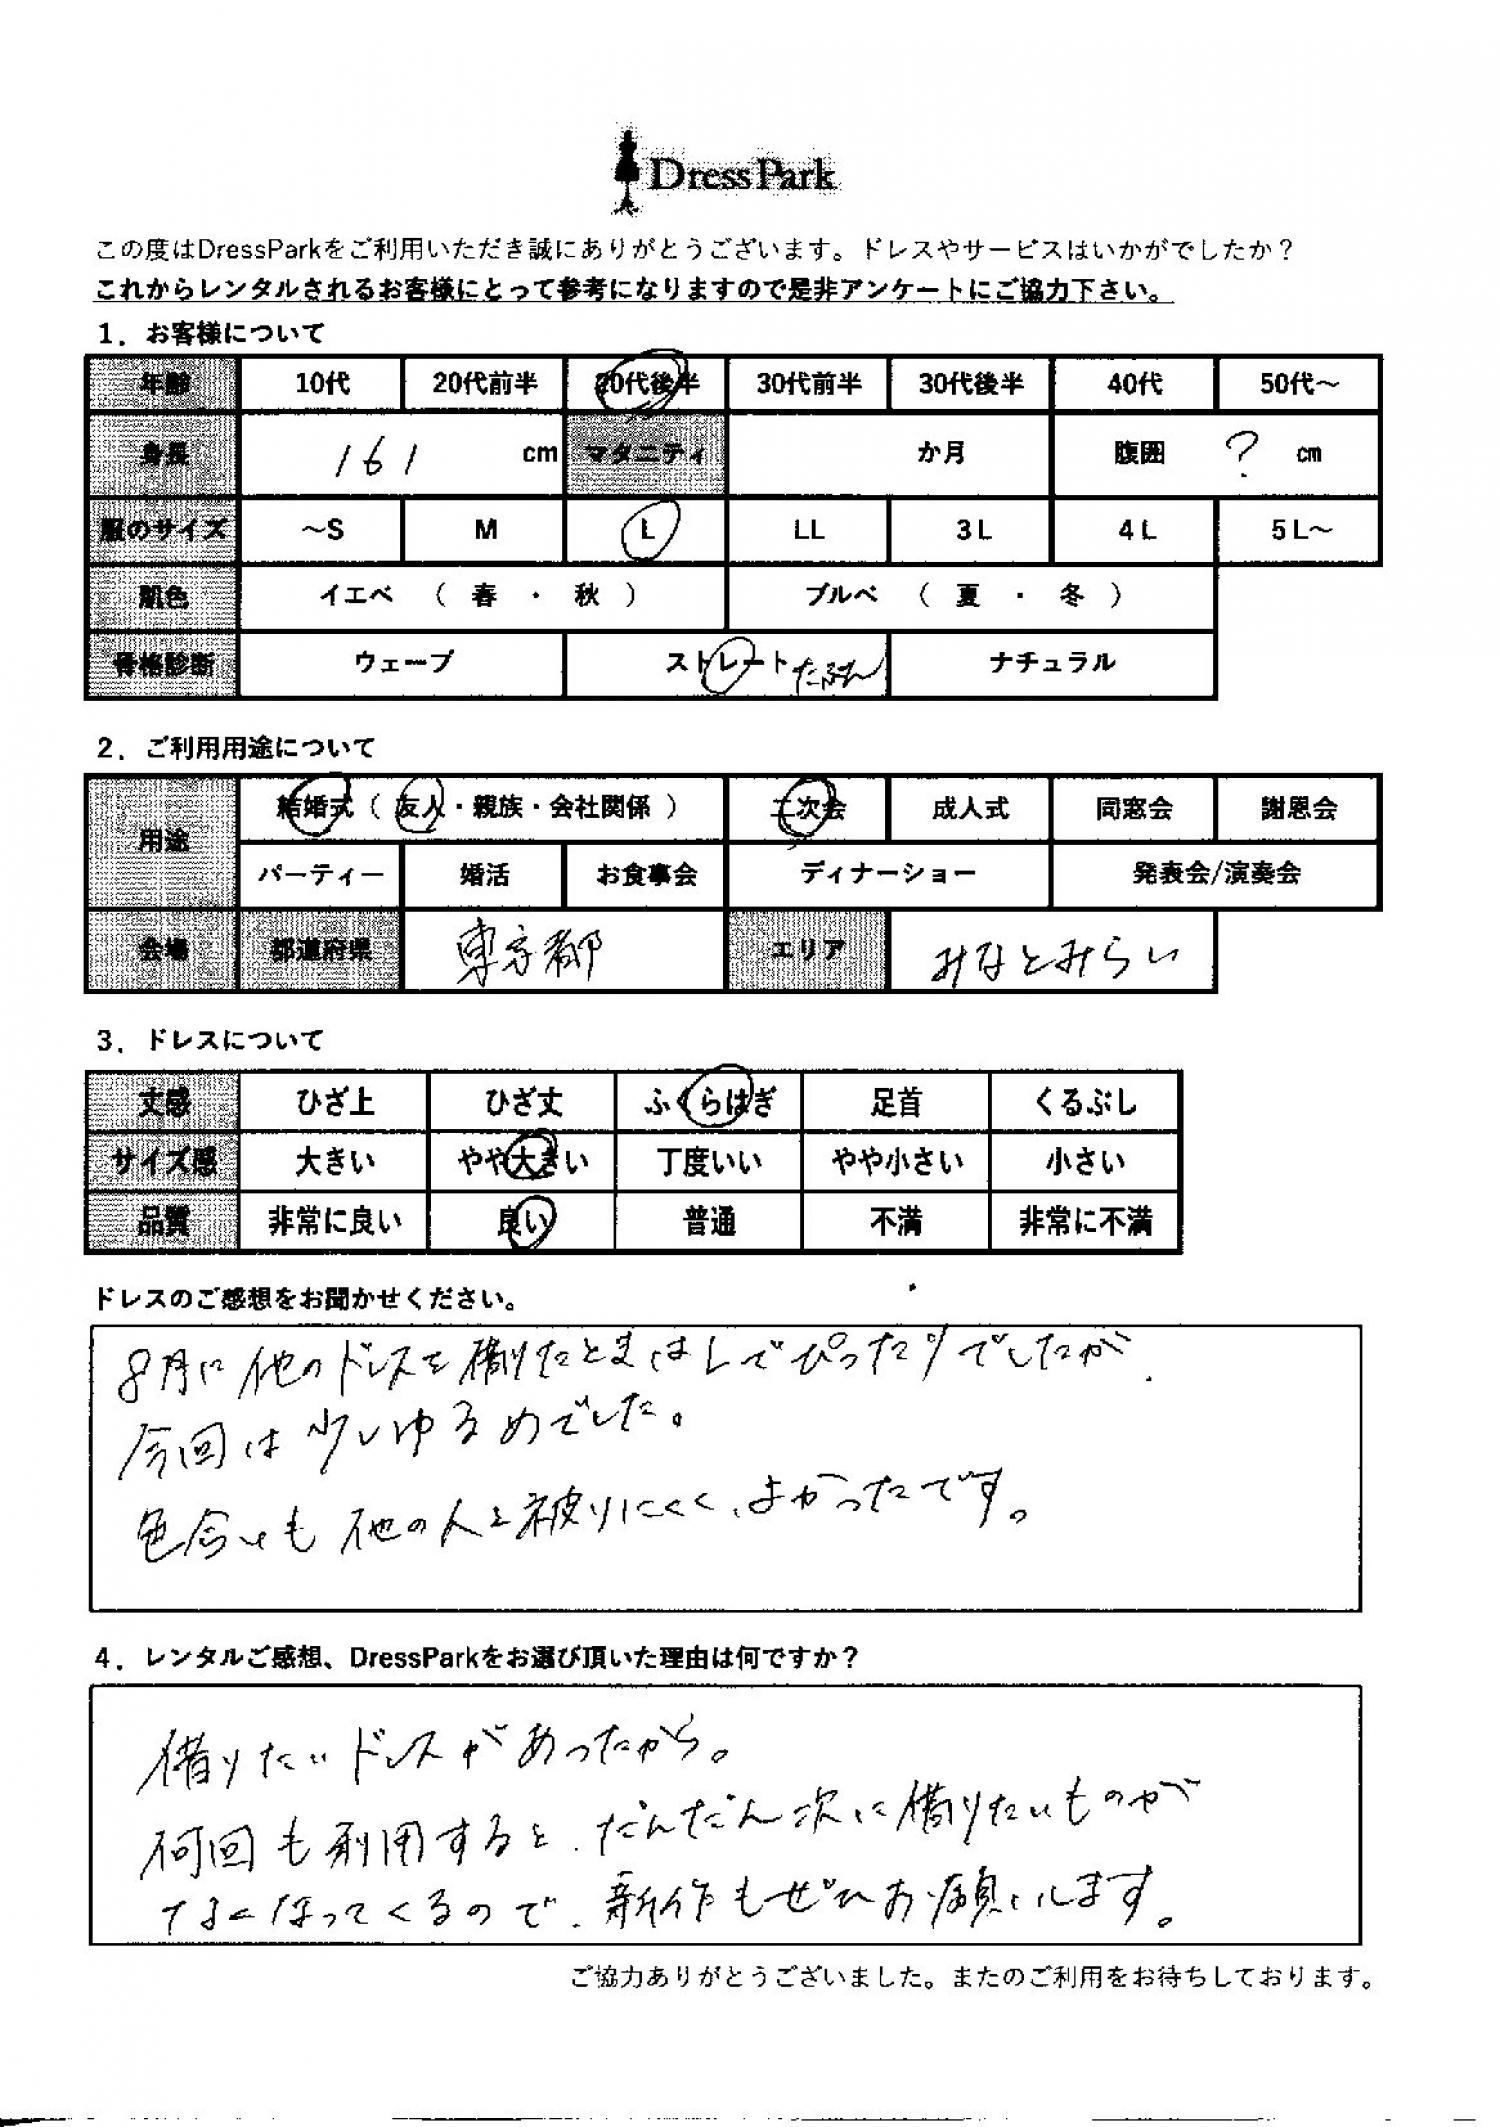 DressPark
この度はDressParkをご利用いただき誠にありがとうございます。ドレスやサービスはいかがでしたか？
これからレンタルされるお客様にとって参考になりますので是非アンケートにご協力下さい。
1．お客様について
年齢 10代 20代前半 20代後半 30代前半 30代後半 40代 50代～
身長 161 cm マタニティ か月 腹囲 ? cm
服のサイズ ～S M L LL 3L 4L 5L～
肌色 イエベ （ 春 ・ 秋 ） ブルベ （ 夏 ・ 冬 ）
骨格診断 ウェーブ ストレート たぶん ナチュラル
2．ご利用用途について
用途 結婚式（ 友人・親族・会社関係 ） 二次会 成人式 同窓会 謝恩会
パーティー 婚活 お食事会 ディナーショー 発表会/演奏会
会場 都道府県 東京都 エリア みなとみらい
3．ドレスについて
丈感 ひざ上 ひざ丈 ふくらはぎ 足首 くるぶし
サイズ感 大きい やや大きい 丁度いい やや小さい 小さい
品質 非常に良い 良い 普通 不満 非常に不満
ドレスのご感想をお聞かせください。
8月に他のドレスを借りたときはLでぴったりでしたが、
今回は少しゆるめでした。
色合いも他の人と被りにくく、よかったです。
4．レンタルご感想、DressParkをお選び頂いた理由は何ですか？
借りたいドレスがあったから。
何回も利用すると、だんだん次に借りたいものが
なくなってくるので、新作もぜひお願いします。
ご協力ありがとうございました。またのご利用をお待ちしております。